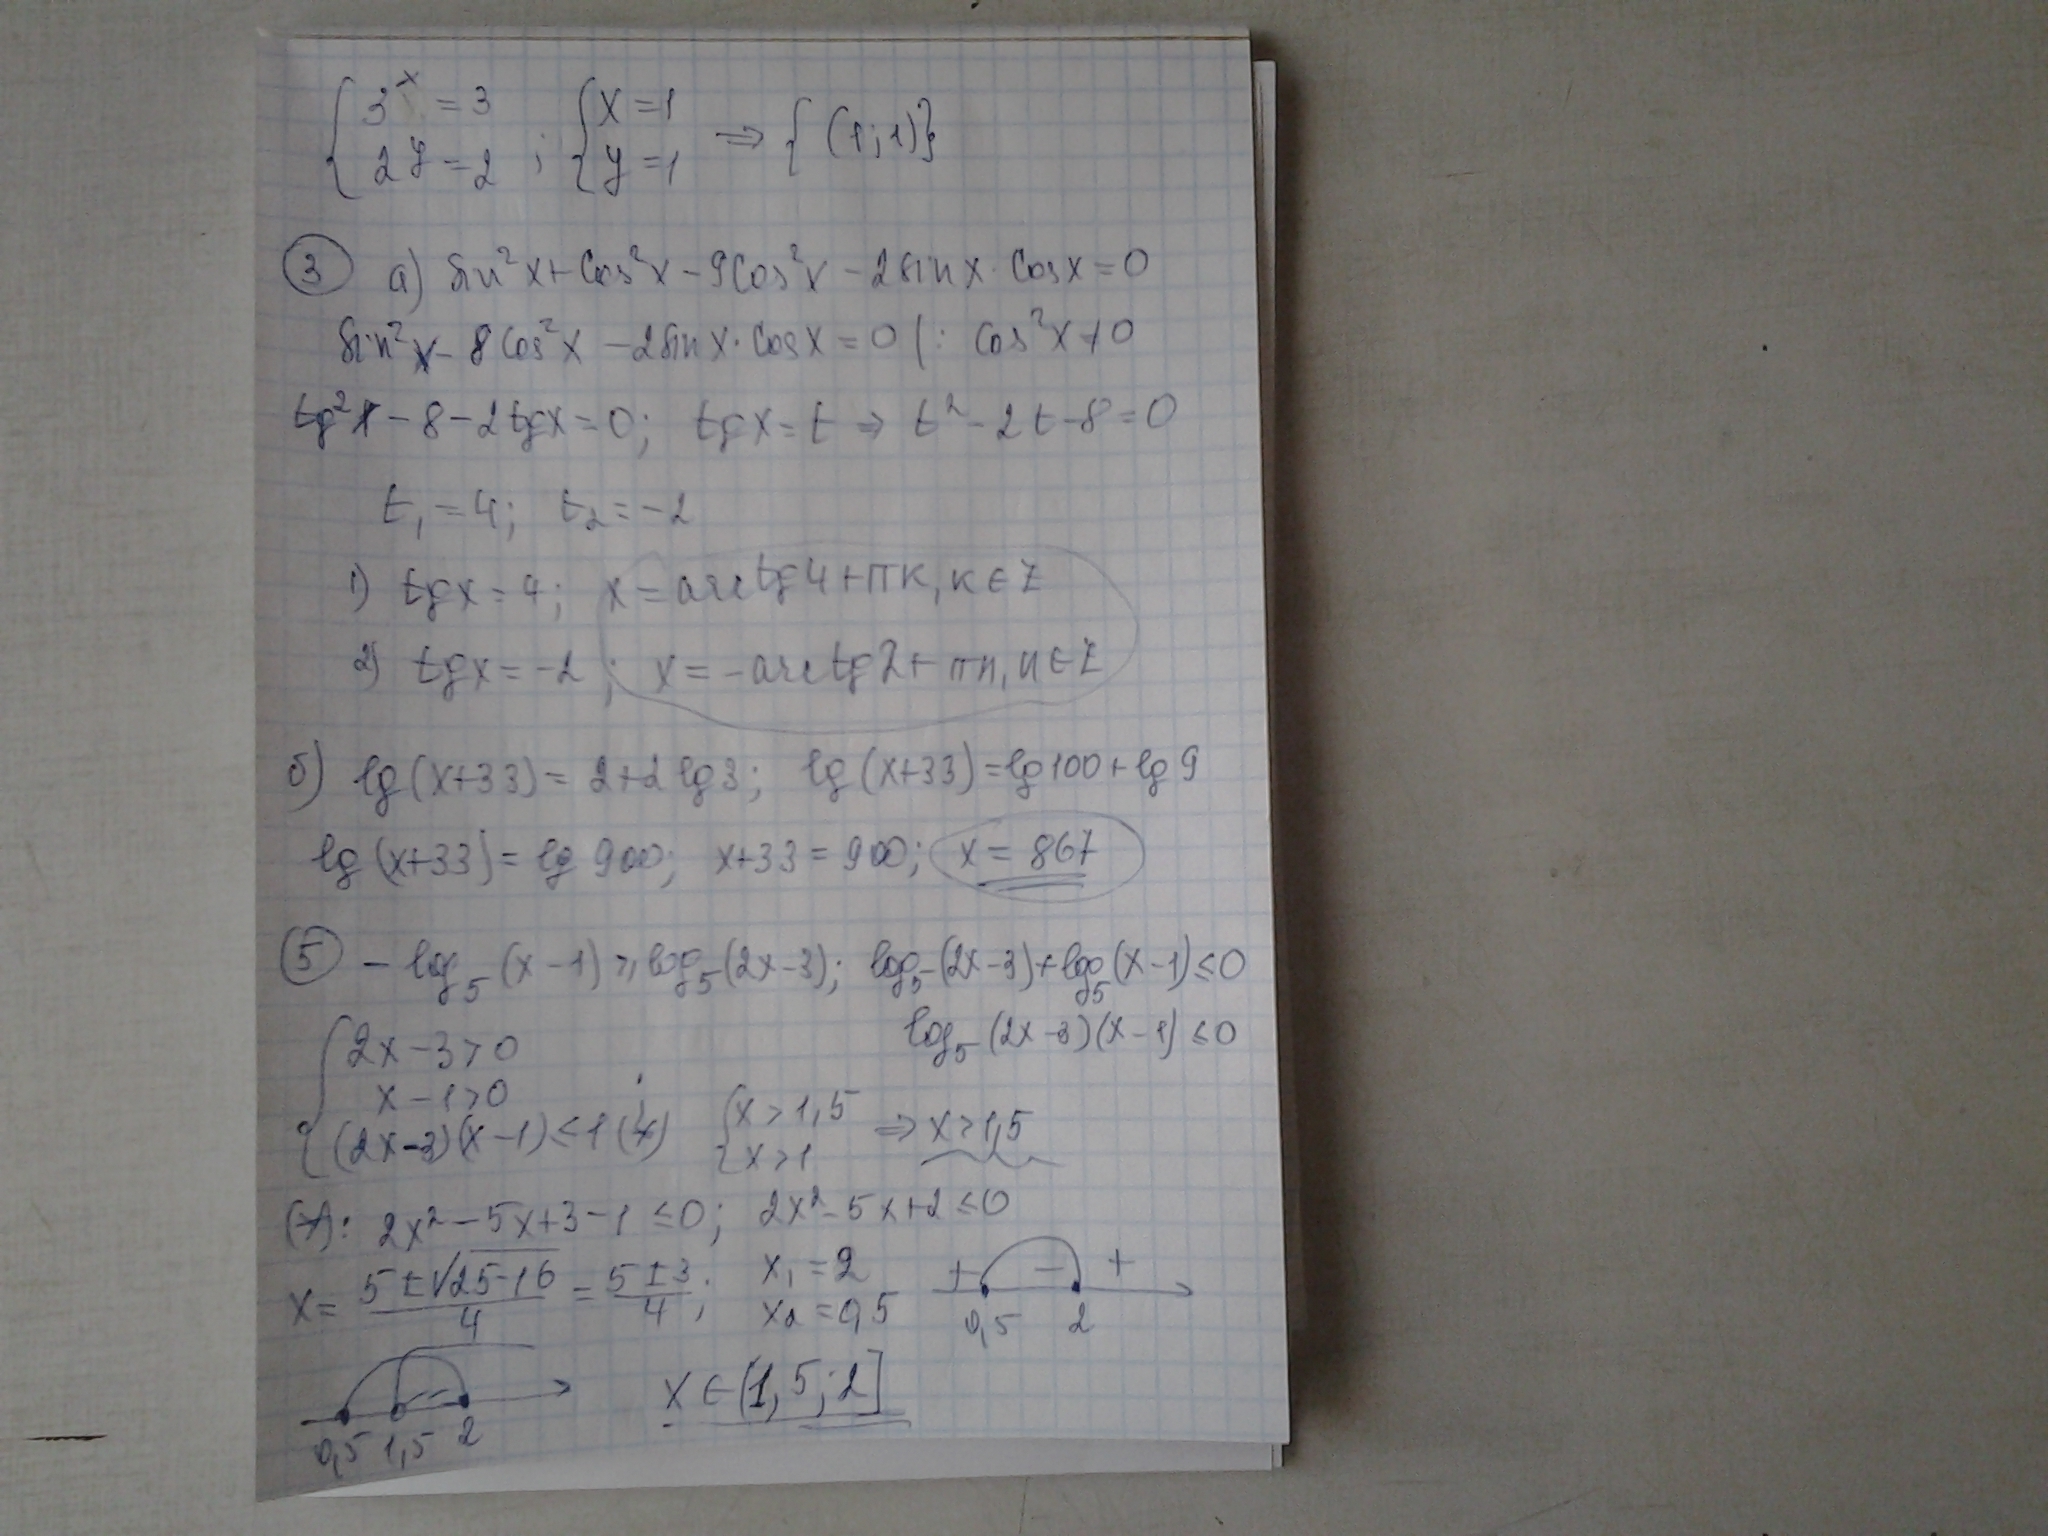 { 3^x = 3
2^y = 2 ; { x = 1
y = 1 ⇒ {(1; 1)}
③ а) sin²x + cos²x − 9cos²x − 2sinx · cosx = 0
sin²x − 8cos²x − 2sinx · cosx = 0 | : cos²x ≠ 0
tg²x − 8 − 2tgx = 0; tgx = t ⇒ t² − 2t − 8 = 0
t₁ = 4; t₂ = −2
1) tgx = 4; x = arctg4 + πк, к ∈ Z
2) tgx = −2; x = −arctg2 + πn, n ∈ Z
б) lg(x+33) = 2 + 2lg3; lg(x+33) = lg100 + lg9
lg(x+33) = lg900; x+33 = 900; x = 867
⑤ −log₅(x−1) ≥ log₅(2x−3); log₅(2x−3) + log₅(x−1) ≤ 0
log₅(2x−3)(x−1) ≤ 0
{ 2x − 3 > 0
x − 1 > 0 ;
(2x−3)(x−1) ≤ 1 (*) { x > 1,5
x > 1 ⇒ x > 1,5
(*): 2x² − 5x + 3 − 1 ≤ 0; 2x² − 5x + 2 ≤ 0
x = (5 ± √25−16)/4 = (5 ± 3)/4; x₁ = 2
x₂ = 0,5 + − +
0,5 2
x ∈ (1,5; 2]
0,5 1,5 2